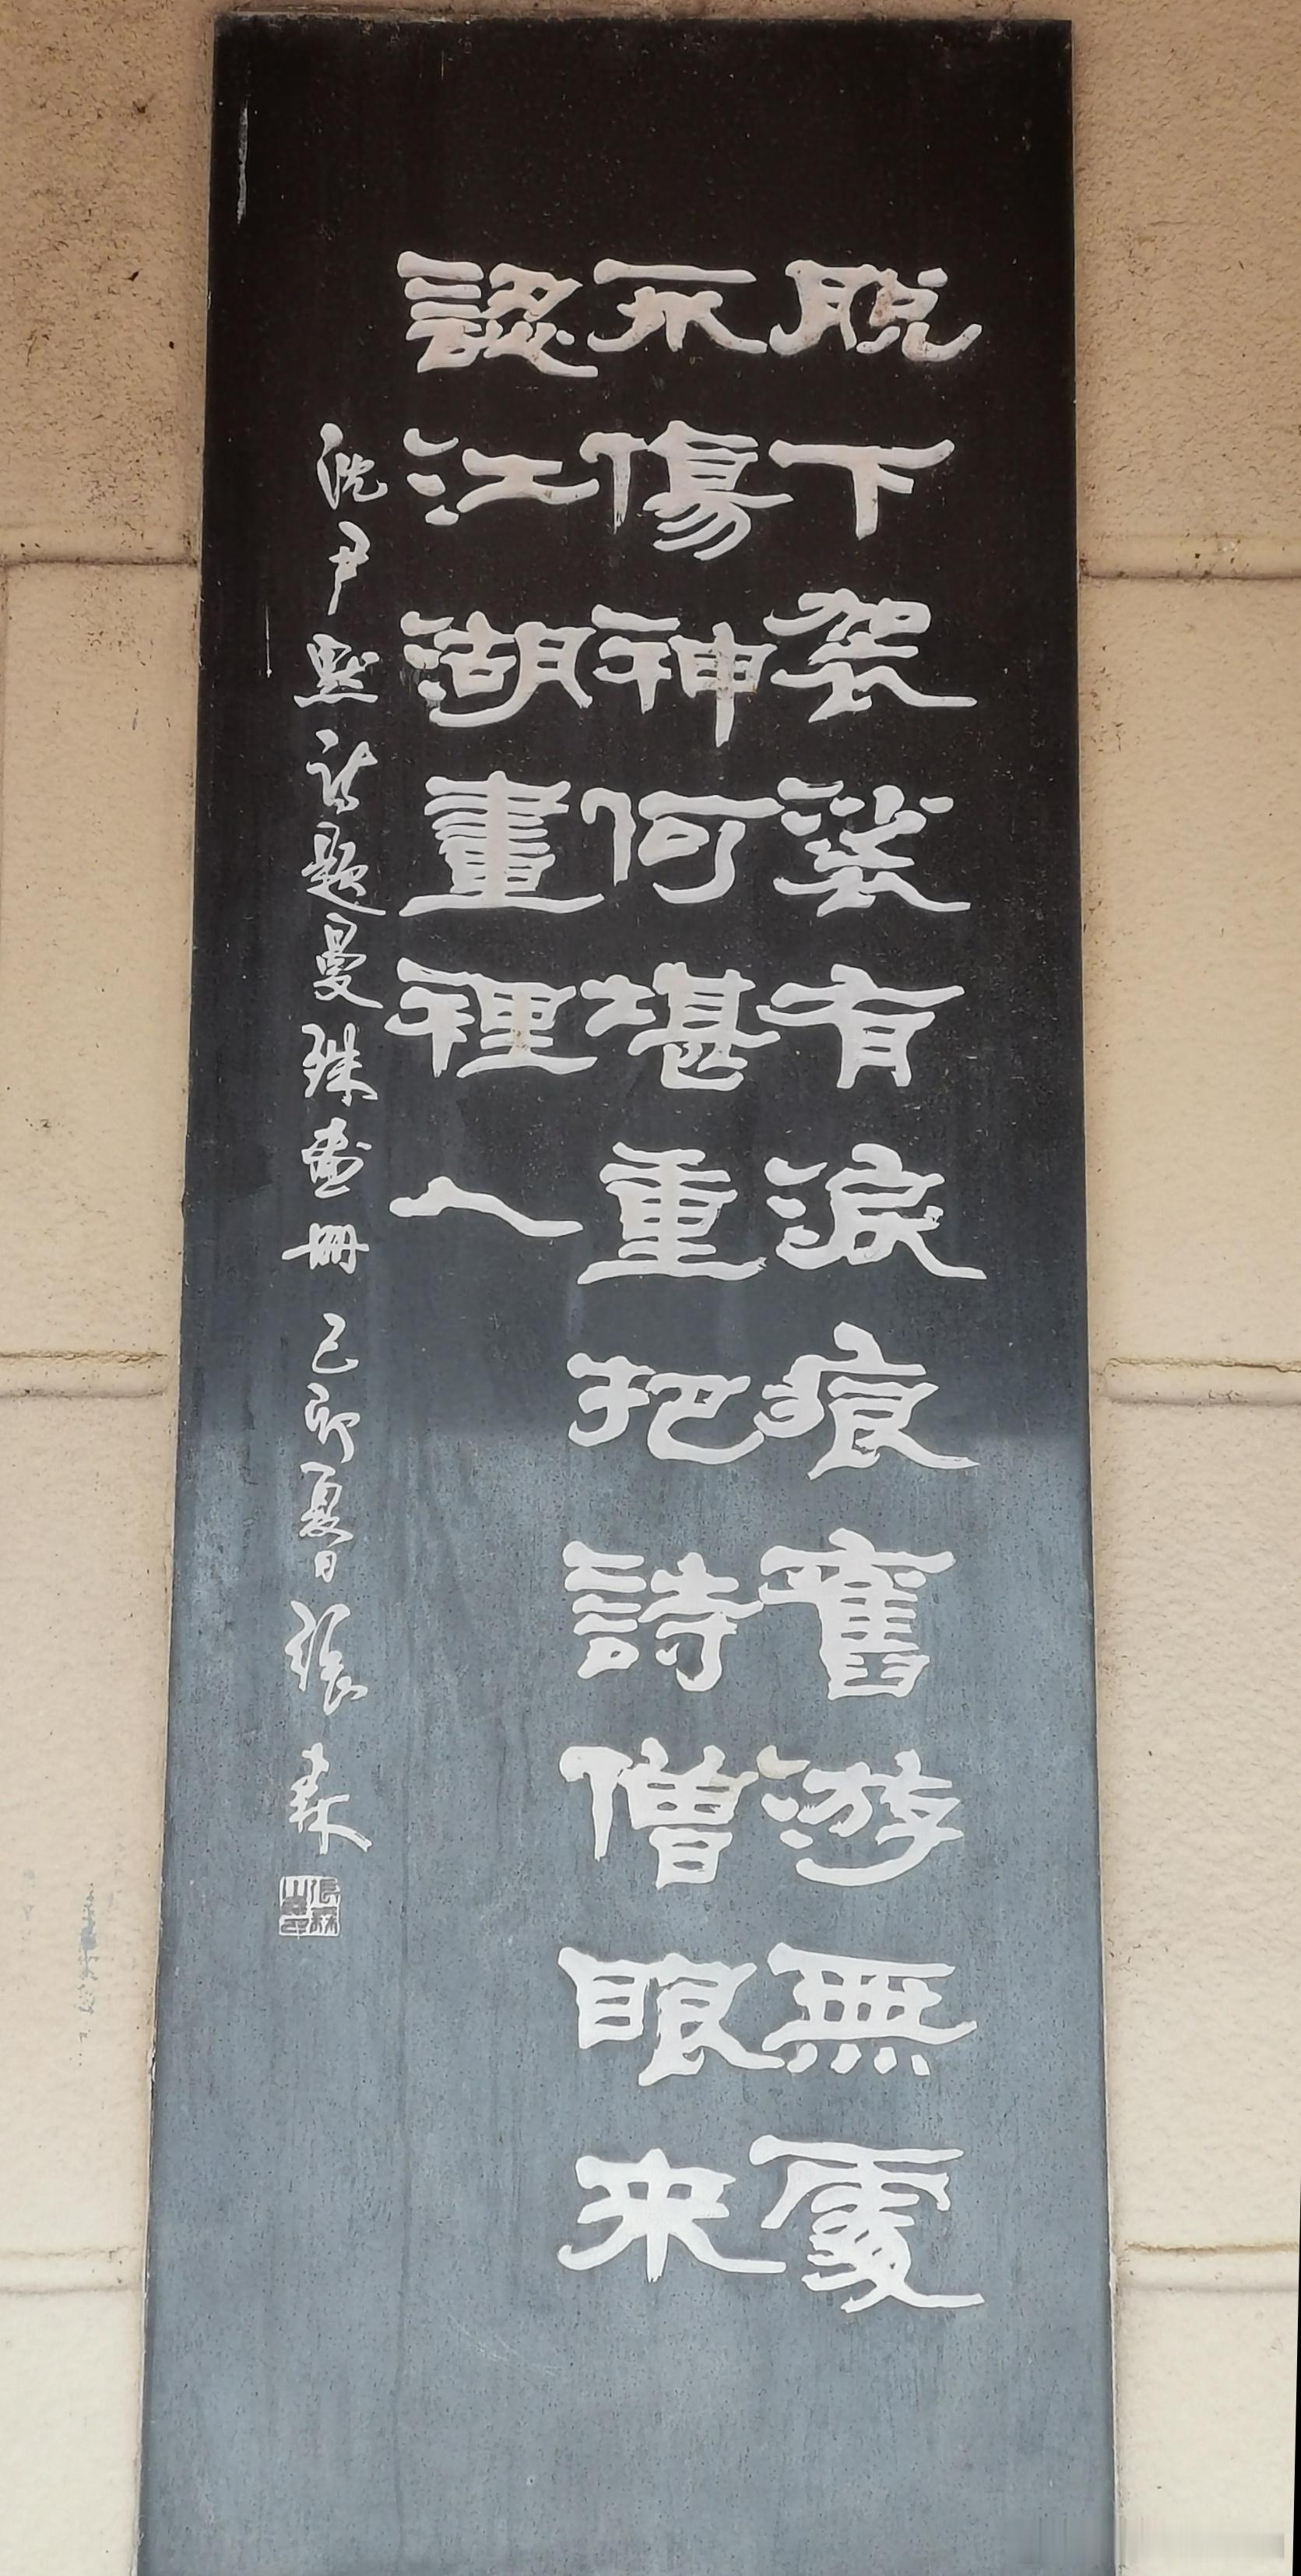 脱下袈裟有淚痕舊游無處
不傷神何堪重把詩僧眼来
認江湖畫裡人
沈尹默詩題曼殊畫册 己卯夏日 張森